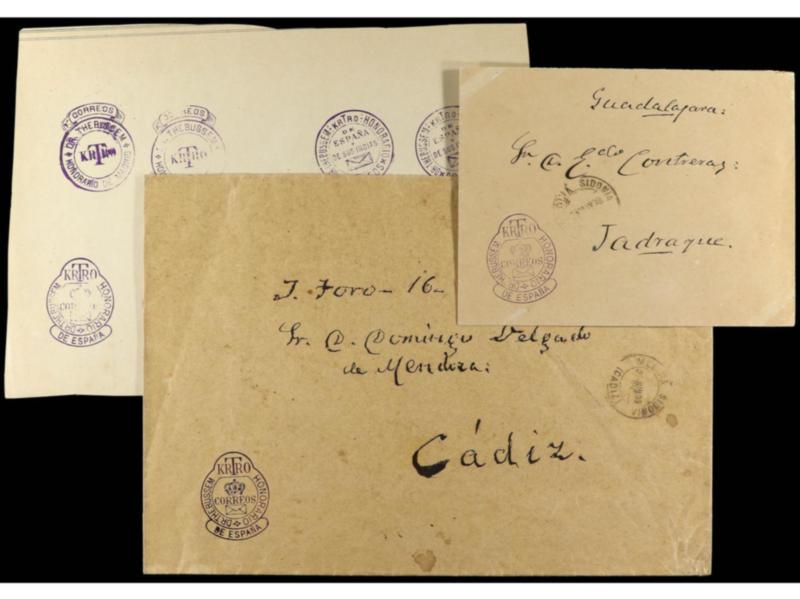 CORREOS
DR. THEBUSSEM
KRTRO
HONORARIO DE
CORREOS
THEBUSSEM
KRTRO
THEBUSSEM-KRTRO-HONORARIO
DE
ESPAÑA
DE SUS INDIAS
CORREOS
KRTRO
DE
ESPAÑA
DE SUS INDIAS
KRTRO
HONORARIO
DR. THEBUSSEM
DE ESPAÑA
Guadalajara:
Sr. D. Edo Contreras:
SIDONIA
Jadraque.
KRTRO
CORREOS
HONORARIO
DR. THEBUSSEM
DE ESPAÑA
T. Foro - 16 -
Sr. D. Domingo Delgado
de Mendoza:
Cádiz.
SIDONIA
(CADIZ)
KRTRO
CORREOS
HONORARIO
DR. THEBUSSEM
DE ESPAÑA